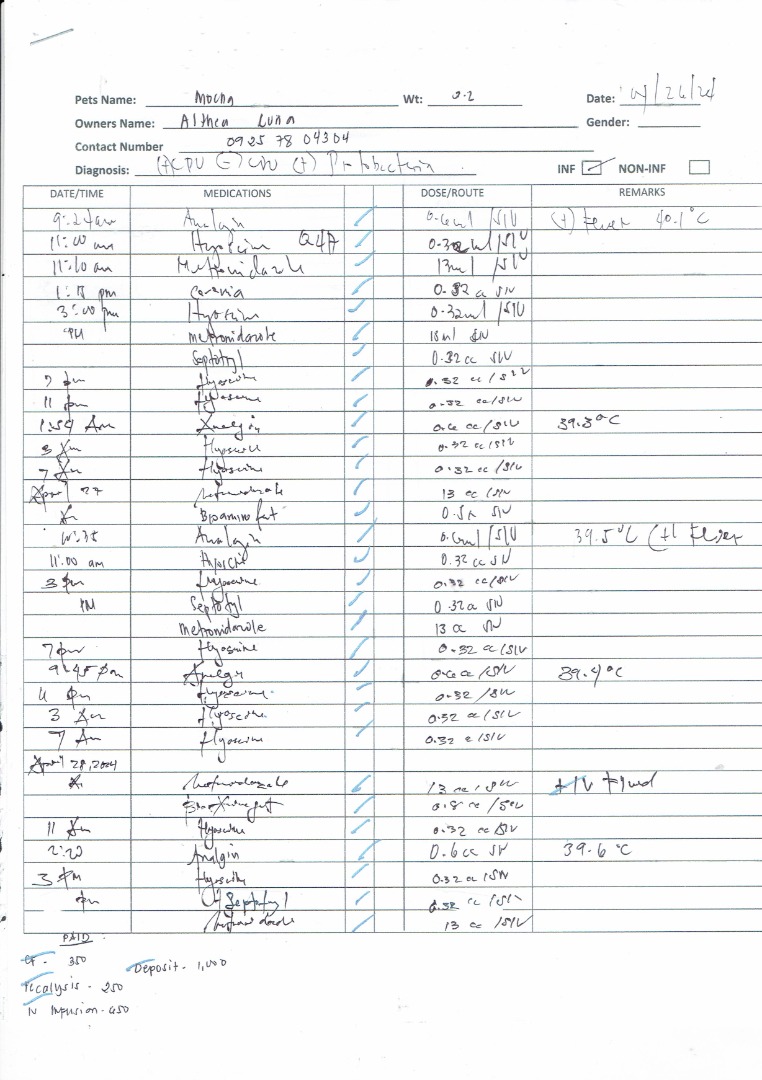 Pets Name: Mocha Wt: 3.2 Date: 04/26/24
Owners Name: Althea Luna Gender:
Contact Number 0925 78 04304
Diagnosis: (+) CPV (-) CDV (+) INF NON-INF
DATE/TIME MEDICATIONS DOSE/ROUTE REMARKS
Analgin (+) Fever 40.1°C
11:00 am Hyoscine Q4H
am Metronidazole 13ml /SIV
pm Cerenia 0.32 cc SIV
3:00 pm Hyoscine 0.32ml /SIV
PM Metronidazole 13ml SIV
Septotryl 0.32cc SIV
7 pm Hyoscine 0.32 cc/SIV
11 pm Hyoscine 0.32 cc/SIV
1:59 Am Analgin cc/SIV 39.3°C
3 Am Hyoscine 0.32 cc/SIV
7 Am Hyoscine 0.32 cc/SIV
April 27 Metronidazole 13 cc/SIV
SIV
Analgin 39.5°C (+) Fever
11:00 am 0.32cc SIV
3 pm Hyoscine 0.32 cc/SIV
PM Septotryl 0.32cc SIV
Metronidazole 13 cc SIV
7 pm Hyoscine 0.32 cc/SIV
9:45 pm cc/SIV 39.4°C
pm Hyoscine 0.32 /SIV
3 Am Hyoscine 0.32 cc/SIV
7 Am Hyoscine 0.32 c/SIV
April 28, 2024
Metronidazole 13 cc/SIV Fluid
11 Am Hyoscine 0.32 cc SIV
2:20 Analgin 0.6cc SIV 39.6°C
3 PM Hyoscine 0.32cc/SIV
pm Septotryl 0.32 cc/SIV
13 cc/SIV
PAID
CF - 350 Deposit - 1,000
Fecalysis - 250
IV Infusion - 450